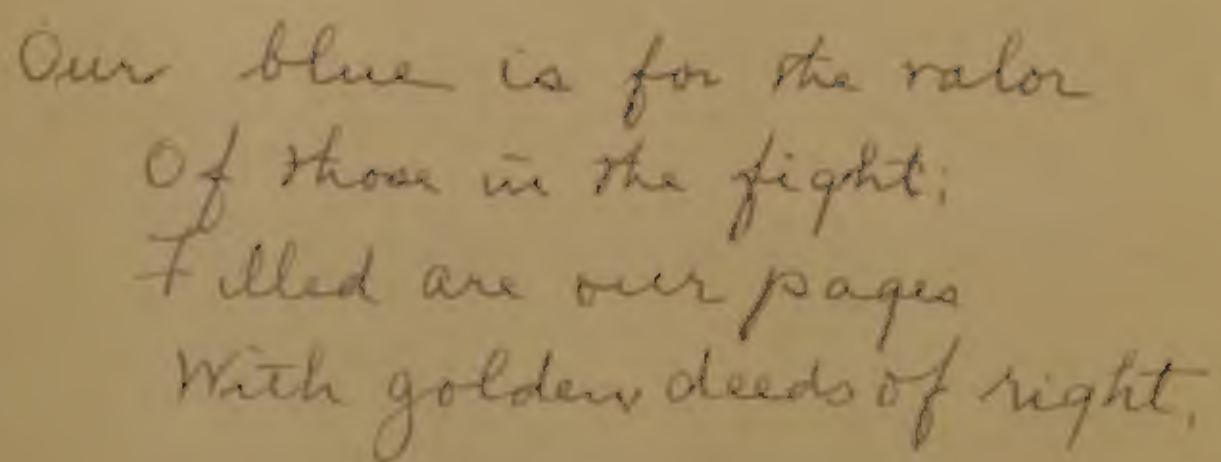 Our blue is for the valor
Of those in the fight;
Filled are our pages
With golden deeds of right.